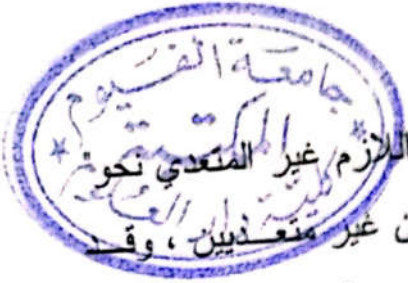 جامعة الفيوم
المكتبة
كلية دار العلوم
اللازم غير المتعدي نحو
ن غير متعديين ، وقد